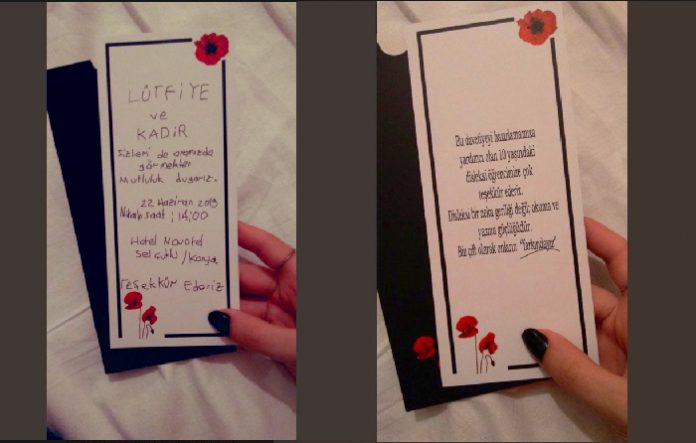 LÛTFİYE
ve
KADİR
Sizleri de aramızda
görmekten
Mutluluk duyarız.
22 Haziran 2019
Nikah saat : 14:00
Hotel Novotel
Selçuklu / Konya
TEŞEKKÜR Ederiz
Bu davetiyeyi hazırlamamıza
yardımcı olan 10 yaşındaki
disleksi öğrencimize çok
teşekkür ederiz.
Disleksi bir zeka geriliği değil; okuma ve
yazma güçlüğüdür.
Biz çift olarak onların "farkındayız"